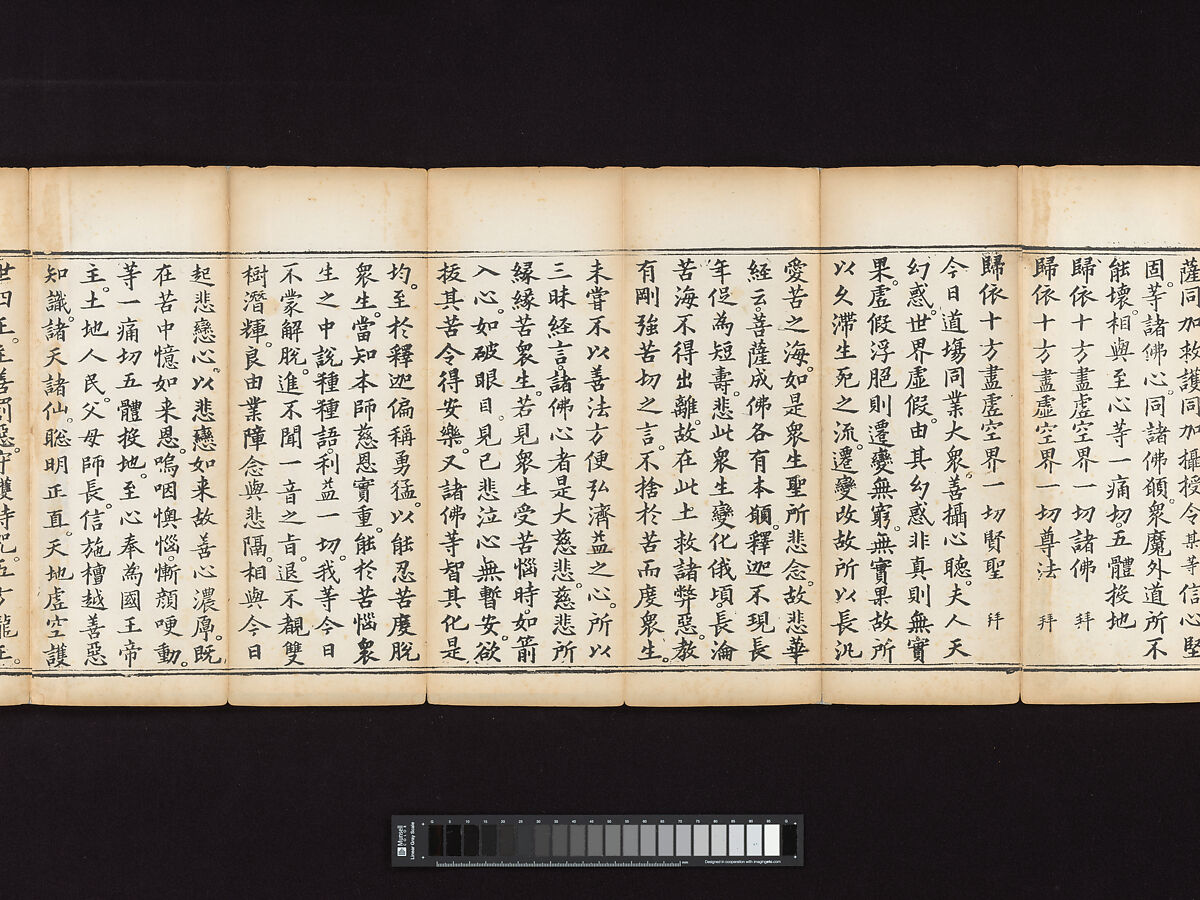 薩同加救護同加攝授令某等信心堅
固。等諸佛心。同諸佛願。衆魔外道所不
能壞。相與至心等一痛切。五體投地
歸依十方盡虛空界一切諸佛 拜
歸依十方盡虛空界一切尊法 拜
歸依十方盡虛空界一切賢聖 拜
今日道塲同業大衆。善攝心聽。夫人天
幻惑。世界虛假。由其幻惑非真則無實
果。虛假浮脆則遷變無窮。無實果故所
以久滯生死之流。遷變改故所以長汎
愛苦之海。如是衆生聖所悲念。故悲華
經云。菩薩成佛各有本願。釋迦不現長
年促為短壽。悲此衆生變化俄頃。長淪
苦海不得出離。故在此土救諸弊惡。教
有剛強苦切之言。不捨於苦而度衆生。
未嘗不以善法方便弘濟益之心。所以
三昧經言。諸佛心者是大慈悲。慈悲所
緣緣苦衆生。若見衆生受苦惱時。如箭
入心。如破眼目。見已悲泣心無暫安。欲
拔其苦令得安樂。又諸佛等智其化是
均。至於釋迦偏稱勇猛。以能忍苦度脫
衆生。當知本師慈恩實重。能於苦惱衆
生之中說種種語。利益一切。我等今日
不蒙解脫。進不聞一音之旨。退不覩雙
樹潛輝。良由業障念與悲隔。相與今日
起悲戀心。以悲戀如来故善心濃厚。既
在苦中憶如来恩。嗚咽懊惱。慚顏哽動。
等一痛切五體投地。至心奉為國王帝
主。土地人民。父母師長。信施檀越善惡
知識。諸天諸仙。聡明正直。天地虛空護
世四王。主善罰惡。守護持咒。五方龍王。
Munsell
COLOR
Linear Gray Scale
Designed in cooperation with imagingetc.com